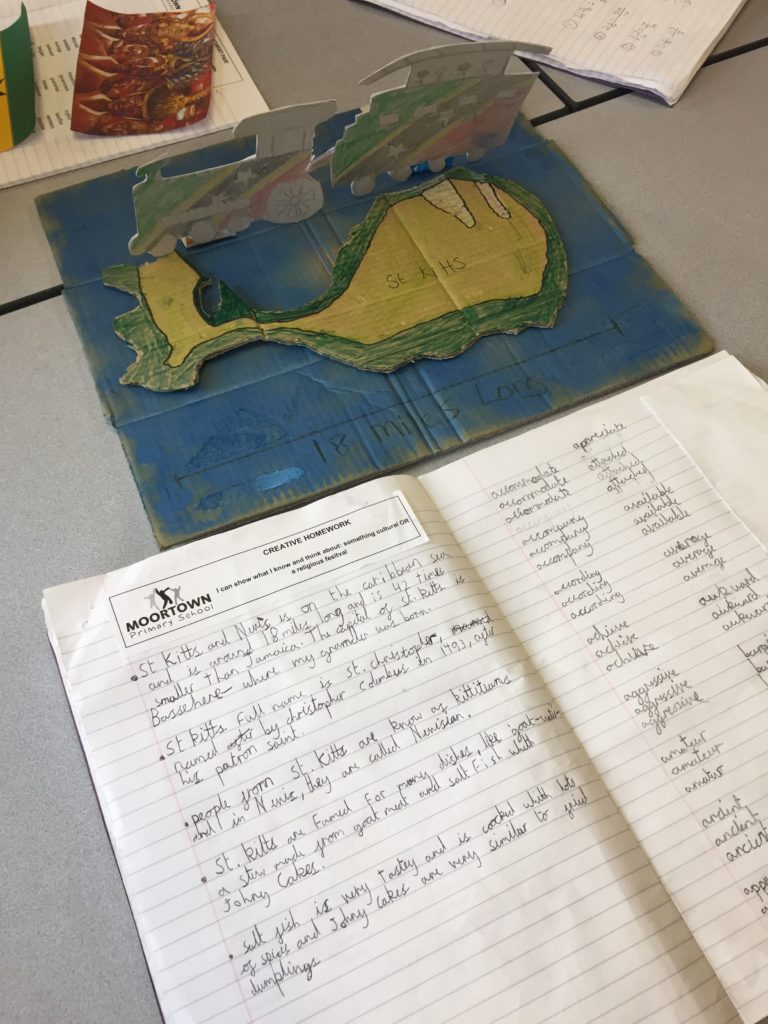 St Kitts
18 miles Long
CREATIVE HOMEWORK
I can show what I know and think about: something cultural OR
a religious fesitval
MOORTOWN
Primary School
• St Kitts and Nevis is on the caribbean sea
and is around 18 miles long and is 42 times
smaller than Jamaica. The capital of St. kitts is
where my grandma was born.
• St kitts full name is St. christopher,
named after by christopher Columbus in 1493, after
his patron saint.
• people from St. Kitts are know as kittituans
and in Nevis, they are called Nevisian.
• St. kitts are famed for many dishes, like goat-water
a stew made from goat meat and salt fish with
Johny Cakes.
• salt fish is very tastey and is cooked with lots
of spices and Johny cakes are very similar to fried
dumplings
appreciate
accommodate
accommodate
accommodate
attached
attached
attached
accompany
accompany
accompany
available
available
available
according
according
according
average
average
average
achieve
achieve
achieve
awkward
awkward
awkward
aggressive
aggressive
aggressive
amateur
amateur
amatur
ancient
ancient
ancient